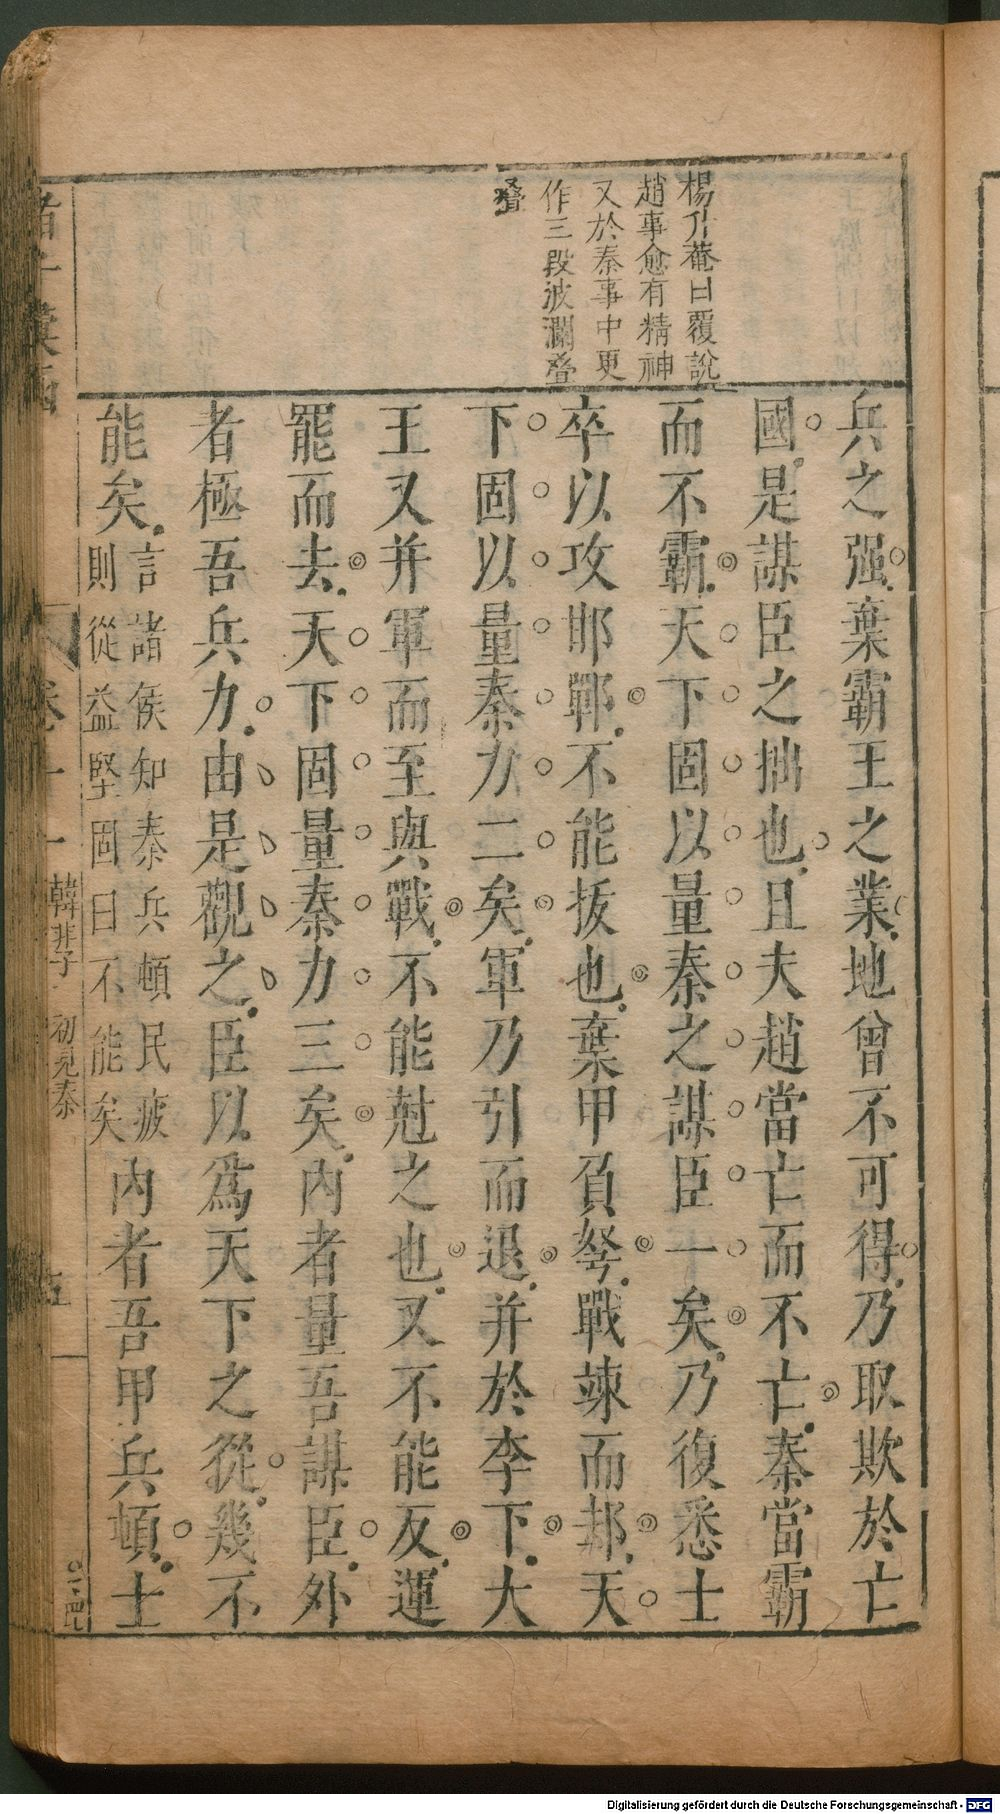 楊升菴曰覆說
趙事愈有精神
又於秦事中更
作三段波瀾疊
疊
兵之强棄霸王之業地曾不可得乃取欺於亡
國是謀臣之拙也且夫趙當亡而不亡秦當霸
而不霸天下固以量秦之謀臣一矣乃復悉士
卒以攻邯鄲不能拔也棄甲負弩戰竦而却天
下固以量秦力二矣軍乃引而退并於李下大
王又并軍而至與戰不能尅之也又不能反運
罷而去天下固量秦力三矣內者量吾謀臣外
者極吾兵力由是觀之臣以爲天下之從幾不
能矣言諸侯知秦兵頓民疲
則從益堅固曰不能矣內者吾甲兵頓士
韓非子 初見秦
Digitalisierung gefördert durch die Deutsche Forschungsgemeinschaft - DFG